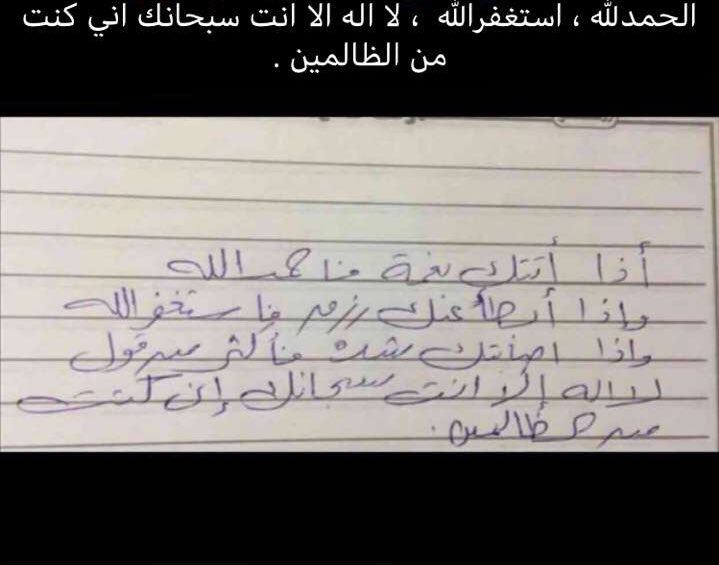 الحمدلله ، استغفرالله ، لا اله الا انت سبحانك اني كنت
من الظالمين .
أذا أتتك نعمة فاحمد الله
وإذا أبطأ عنك رزق فاستغفر الله
واذا اصابتك شدة فأكثر من قول
لا اله إلا انت سبحانك إني كنت
من الظالمين .